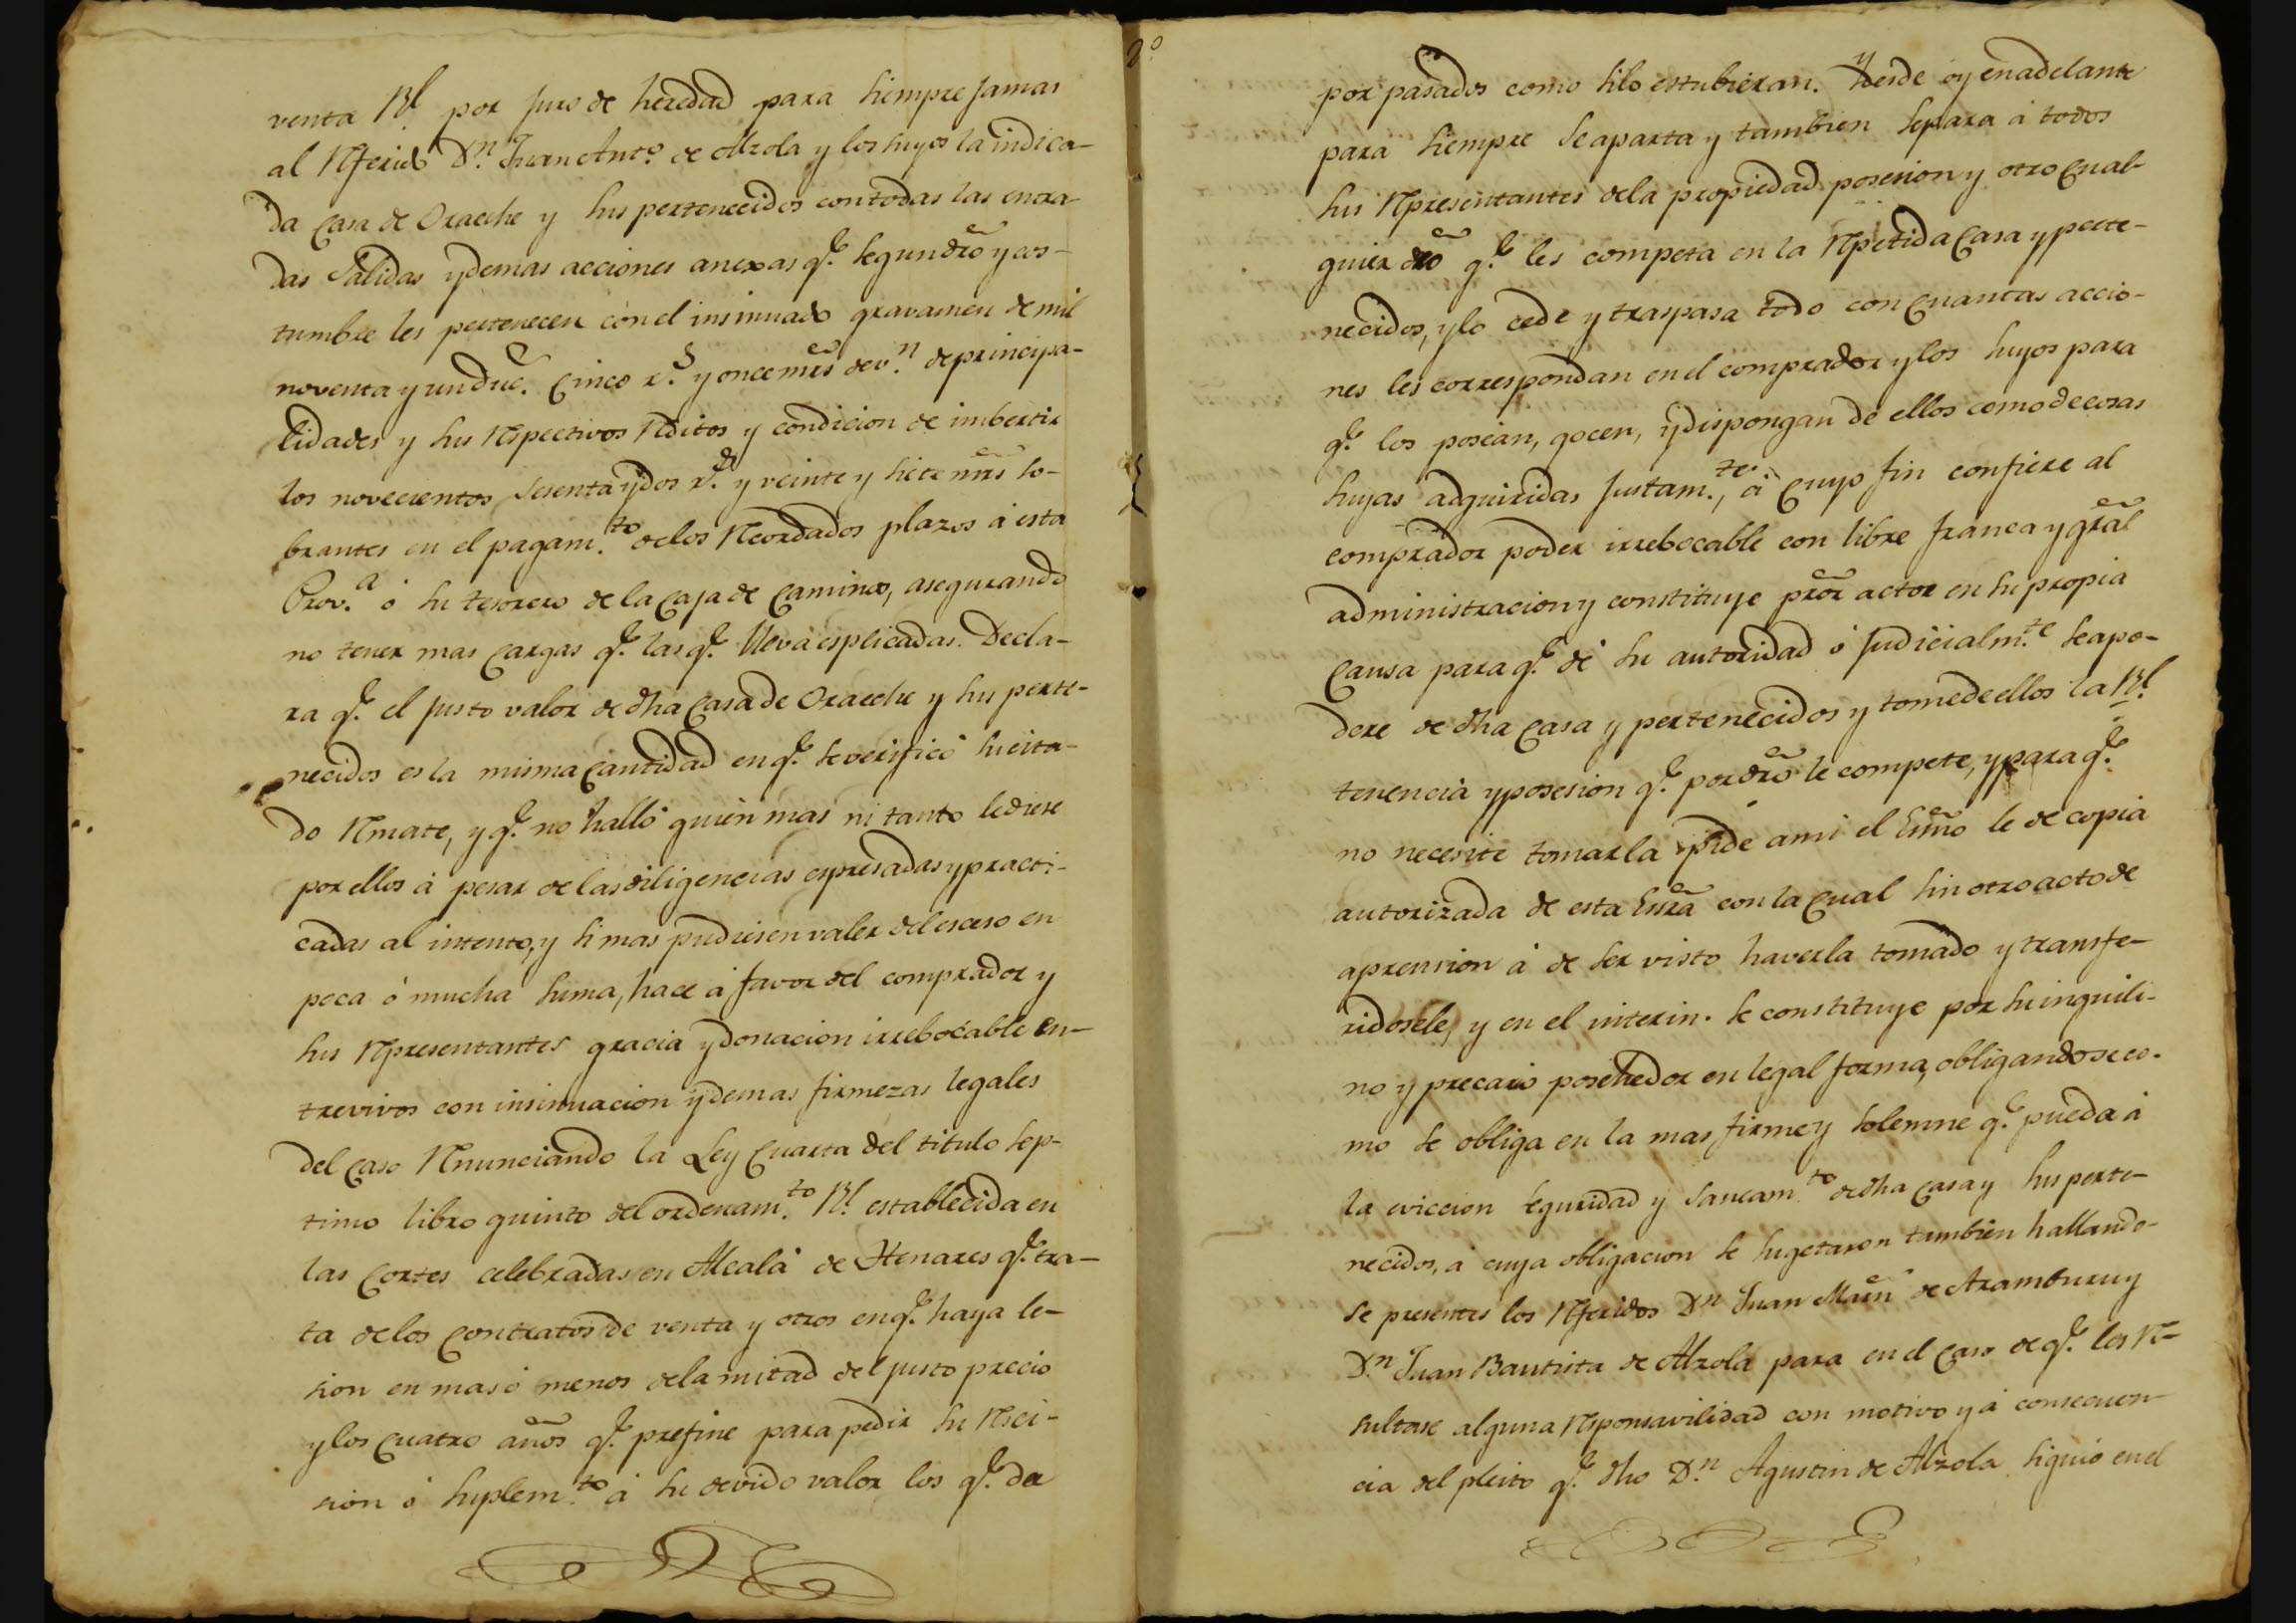 venta Rl. por juro de heredad para siempre jamas
al Referido Dn. Juan Anto. de Alzola y los suyos la indica-
da Casa de Oraeche y sus pertenecidos con todas las entra-
das Salidas y demas acciones anexas qe. segun dro y cos-
tumbre les pertenecen con el insinuado gravamen de mil
noventa y un duc. Cinco rs. y once mrs de vn. de principa-
lidades y sus Respectivos Reditos y condicion de imbertir
los novecientos sesenta y dos rs. y veinte y siete mrs so-
brantes en el pagamto. de los Recordados plazos á esta
Prova. ó su tesorero de la Caja de Caminos, asegurando
no tener mas Cargas qe. las qe. lleva esplicadas. Decla-
ra qe. el justo valor de dha Casa de Oraeche y sus perte-
necidos es la misma Cantidad en qe. se verificó su cita-
do Rmate, y qe. no halló quien mas ni tanto le diese
por ellos á pesar de las diligencias expresadas y practi-
cadas al intento, y si mas pudiesen valer del esceso en
poca ó mucha suma, hace á favor del comprador y
sus Representantes gracia y donacion irrebocable en-
trevivos con insinuacion y demas firmezas legales
del Caso Renunciando la Ley Cuarta del titulo sep-
timo libro quinto del ordenamto. Rl. establecida en
las Cortes celebradas en Alcalá de Henares qe. tra-
ta de los Contratos de venta y otros en qe. haya le-
sion en mas ó menos de la mitad del justo precio
y los Cuatro años qe. prefine para pedir su Resci-
sion ó suplemto. á su devido valor los qe. da
por pasados como si lo estubieran. Y desde oy en adelante
para siempre se aparta y tambien separa á todos
sus Representantes de la propiedad posesion y otro Cual-
quier dro qe. les competa en la Repetida Casa y perte-
necidos, y lo cede y traspasa todo con Cuantas accio-
nes les correspondan en el comprador y los suyos para
qe. los posean, gocen, y dispongan de ellos como de cosas
suyas adquiridas justamte., á Cuyo fin confiere al
comprador poder irrebocable con libre franca y gral
administracion y constituye pror actor en su propia
Causa para qe. de su autoridad ó Judicialmte. se apo-
dere de dha Casa y pertenecidos y tome de ellos la Rl.
tenencia y posesion qe. por dro le compete, y para qe.
no necesite tomarla pide a mi el Essno le de copia
autorizada de esta Essra con la Cual sin otro acto de
aprension á de ser visto haverla tomado y transfe-
ridosele, y en el interin se constituye por su inquili-
no y precario posehedor en legal forma, obligandose co-
mo se obliga en la mas firme y solemne qe. pueda á
la eviccion seguridad y saneamto. de dha Casa y sus perte-
necidos, á cuya obligacion se sugetaron tambien hallando-
se presentes los Referidos Dn Juan Marn de Aramburu y
Dn. Juan Bautista de Alzola para en el Caso de qe. les Re-
sultase alguna Responsavilidad con motivo y á consecuen-
cia del pleito qe. dho Dn. Agustin de Alzola siguió en el